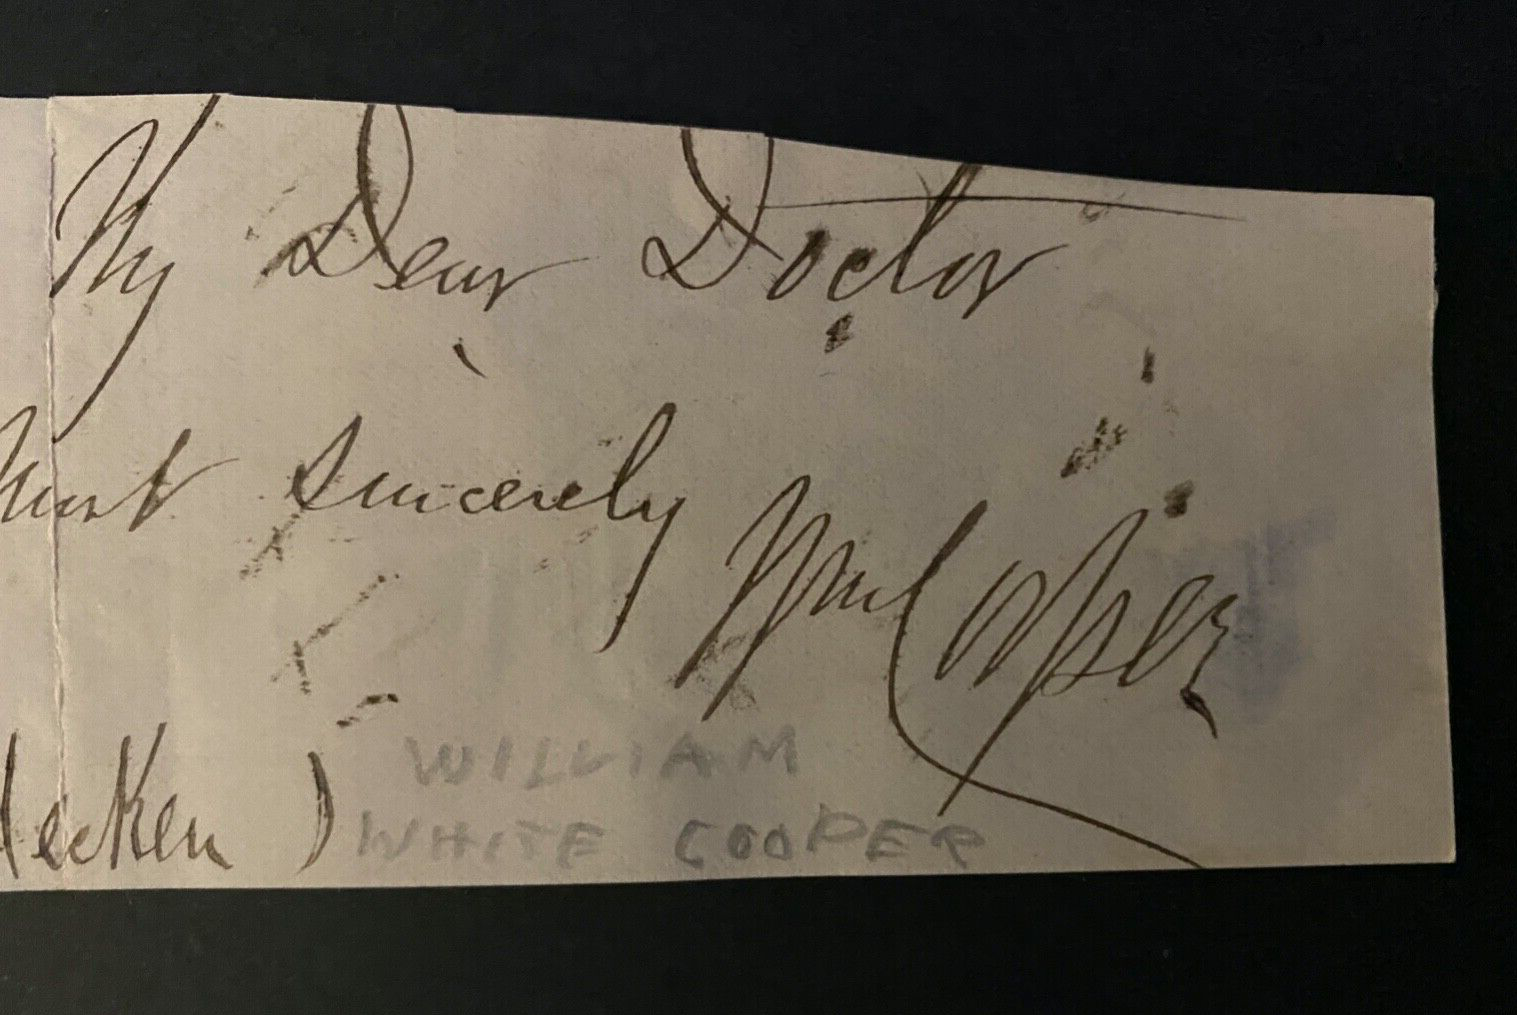 My Dear Doctor
Most sincerely
Wm Cooper
ecken)
WILLIAM
WHITE COOPER